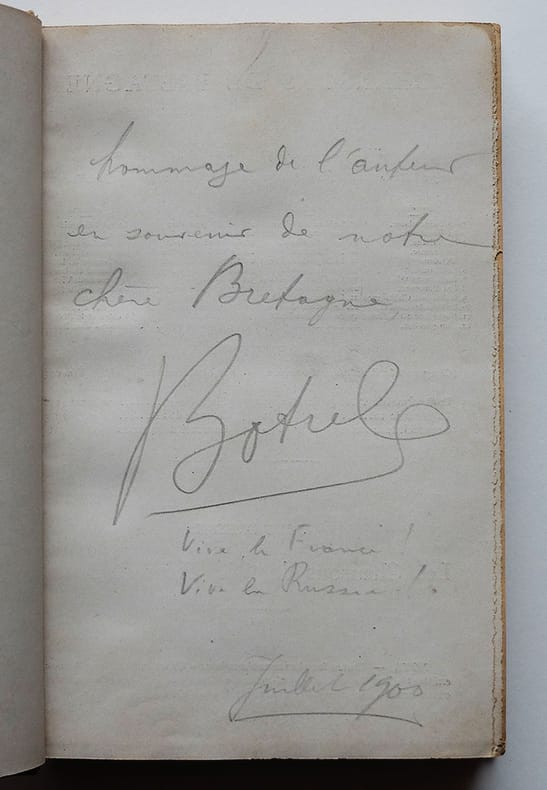 hommage de l'auteur
en souvenir de notre
chère Bretagne
Botrel
Vive la France !
Vive la Russie !
Juillet 1900